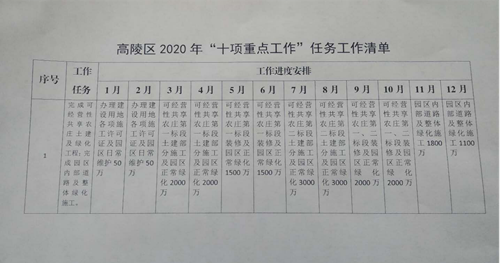 高陵区2020年“十项重点工作”任务工作清单
序号
工作
任务
工作进度安排
1月 2月 3月 4月 5月 6月 7月 8月 9月 10月 11月 12月
1
完成可
经营性
共享农
庄土建
及绿化
工程;完
成园区
内部道
路及整
体绿化
施工。
办理建
设用地
各项施
工许可
证及园
区日常
维护50
万
办理建
设用地
各项施
工许可
证及园
区日常
维护50
万
可经营
性共享
农庄第
一标段
土建部
分施工
及园区
正常绿
化2000
万
可经营
性共享
农庄第
一标段
土建部
分施工
及园区
正常绿
化2000
万
可经营
性共享
农庄第
一标段
装修及
园区正
常绿化
1500万
可经营
性共享
农庄第
一标段
装修及
园区正
常绿化
1500万
可经营
性共享
农庄第
二标段
土建部
分施工
及园区
正常绿
化3000
万
可经营
性共享
农庄第
二标段
土建部
分施工
及园区
正常绿
化3000
万
可经营
性共享
农庄第
一、二
标段装
修及园
区正常
绿化
2000万
可经营
性共享
农庄第
一、二
标段装
修及园
区正常
绿化
2000万
园区内
部道路
及整体
绿化施
工1800
万
园区内
部道路
及整体
绿化施
工1100
万